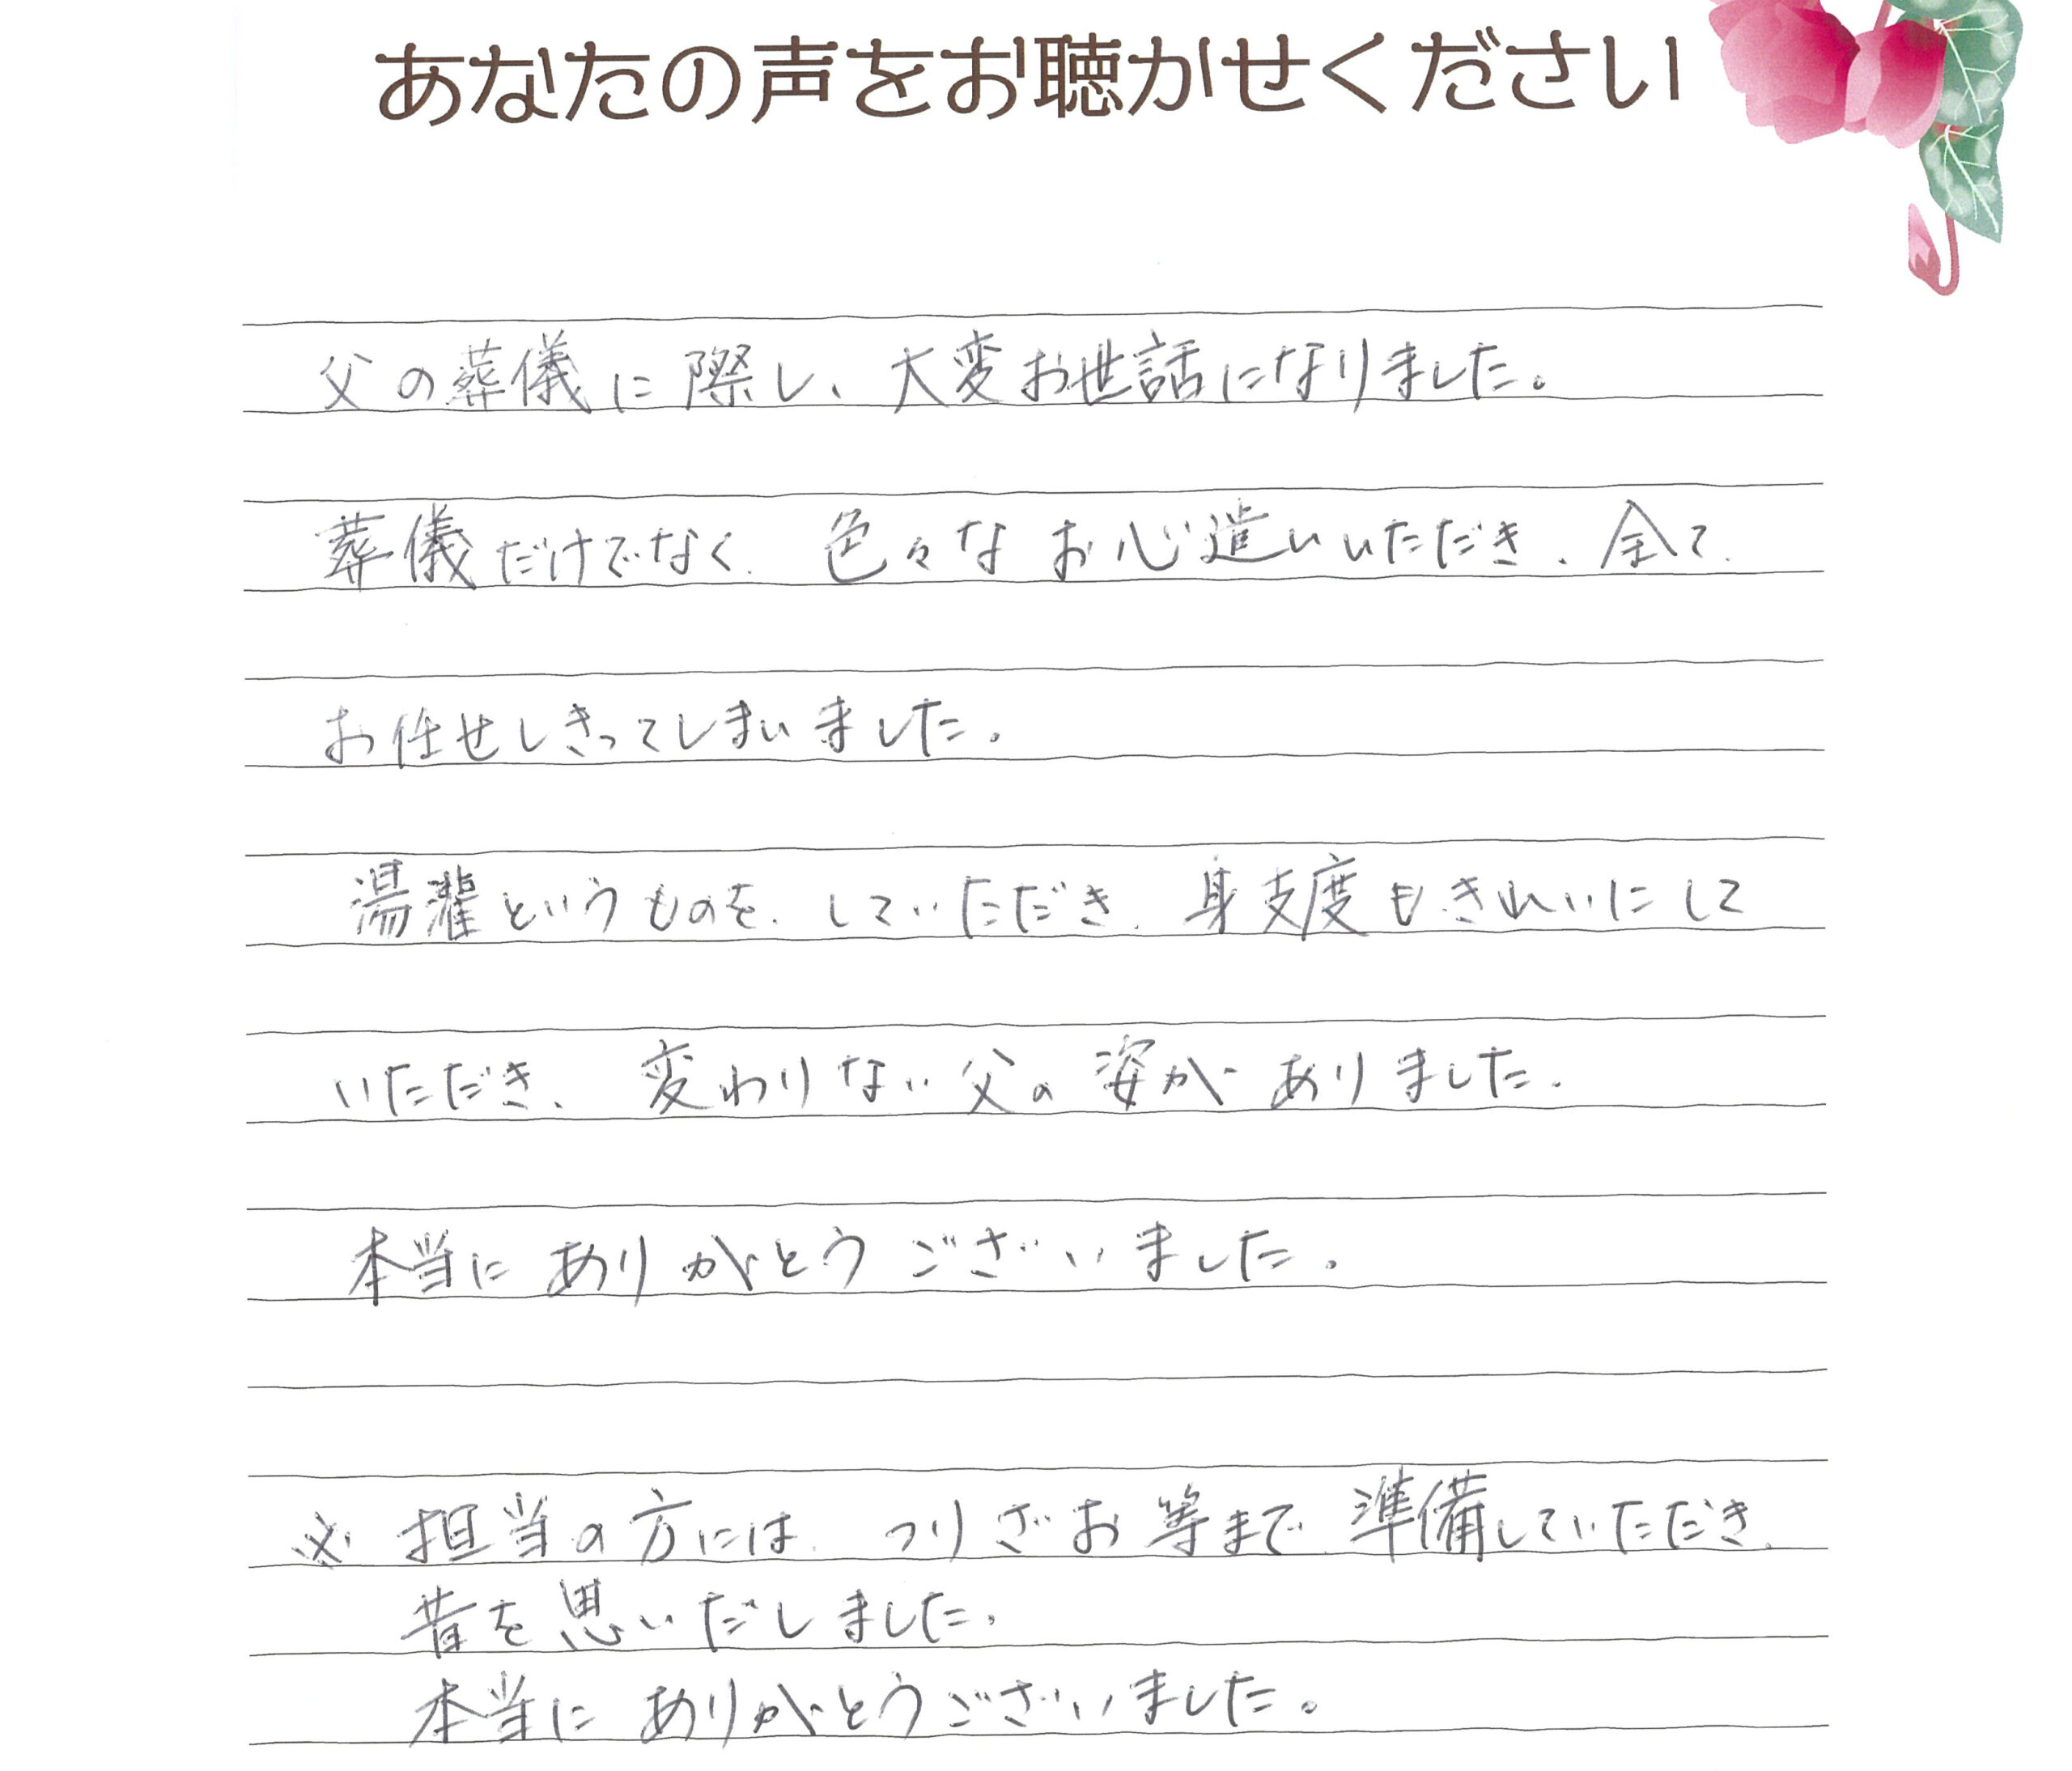 あなたの声をお聴かせください
父の葬儀に際し、大変お世話になりました。
葬儀だけでなく、色々なお心遣いいただき、全て、
お任せしきってしまいました。
湯灌というものを、していただき、身支度もきれいにして
いただき、変わりない父の姿がありました。
本当にありがとうございました。
※ 担当の方には、つりざお等まで準備していただき、
昔を思いだしました。
本当にありがとうございました。